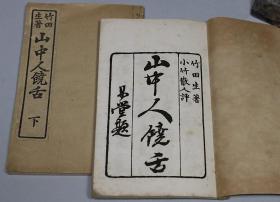 竹田生著
山中人饒舌
下
竹田生著
小竹散人評
山中人饒舌
易堂題